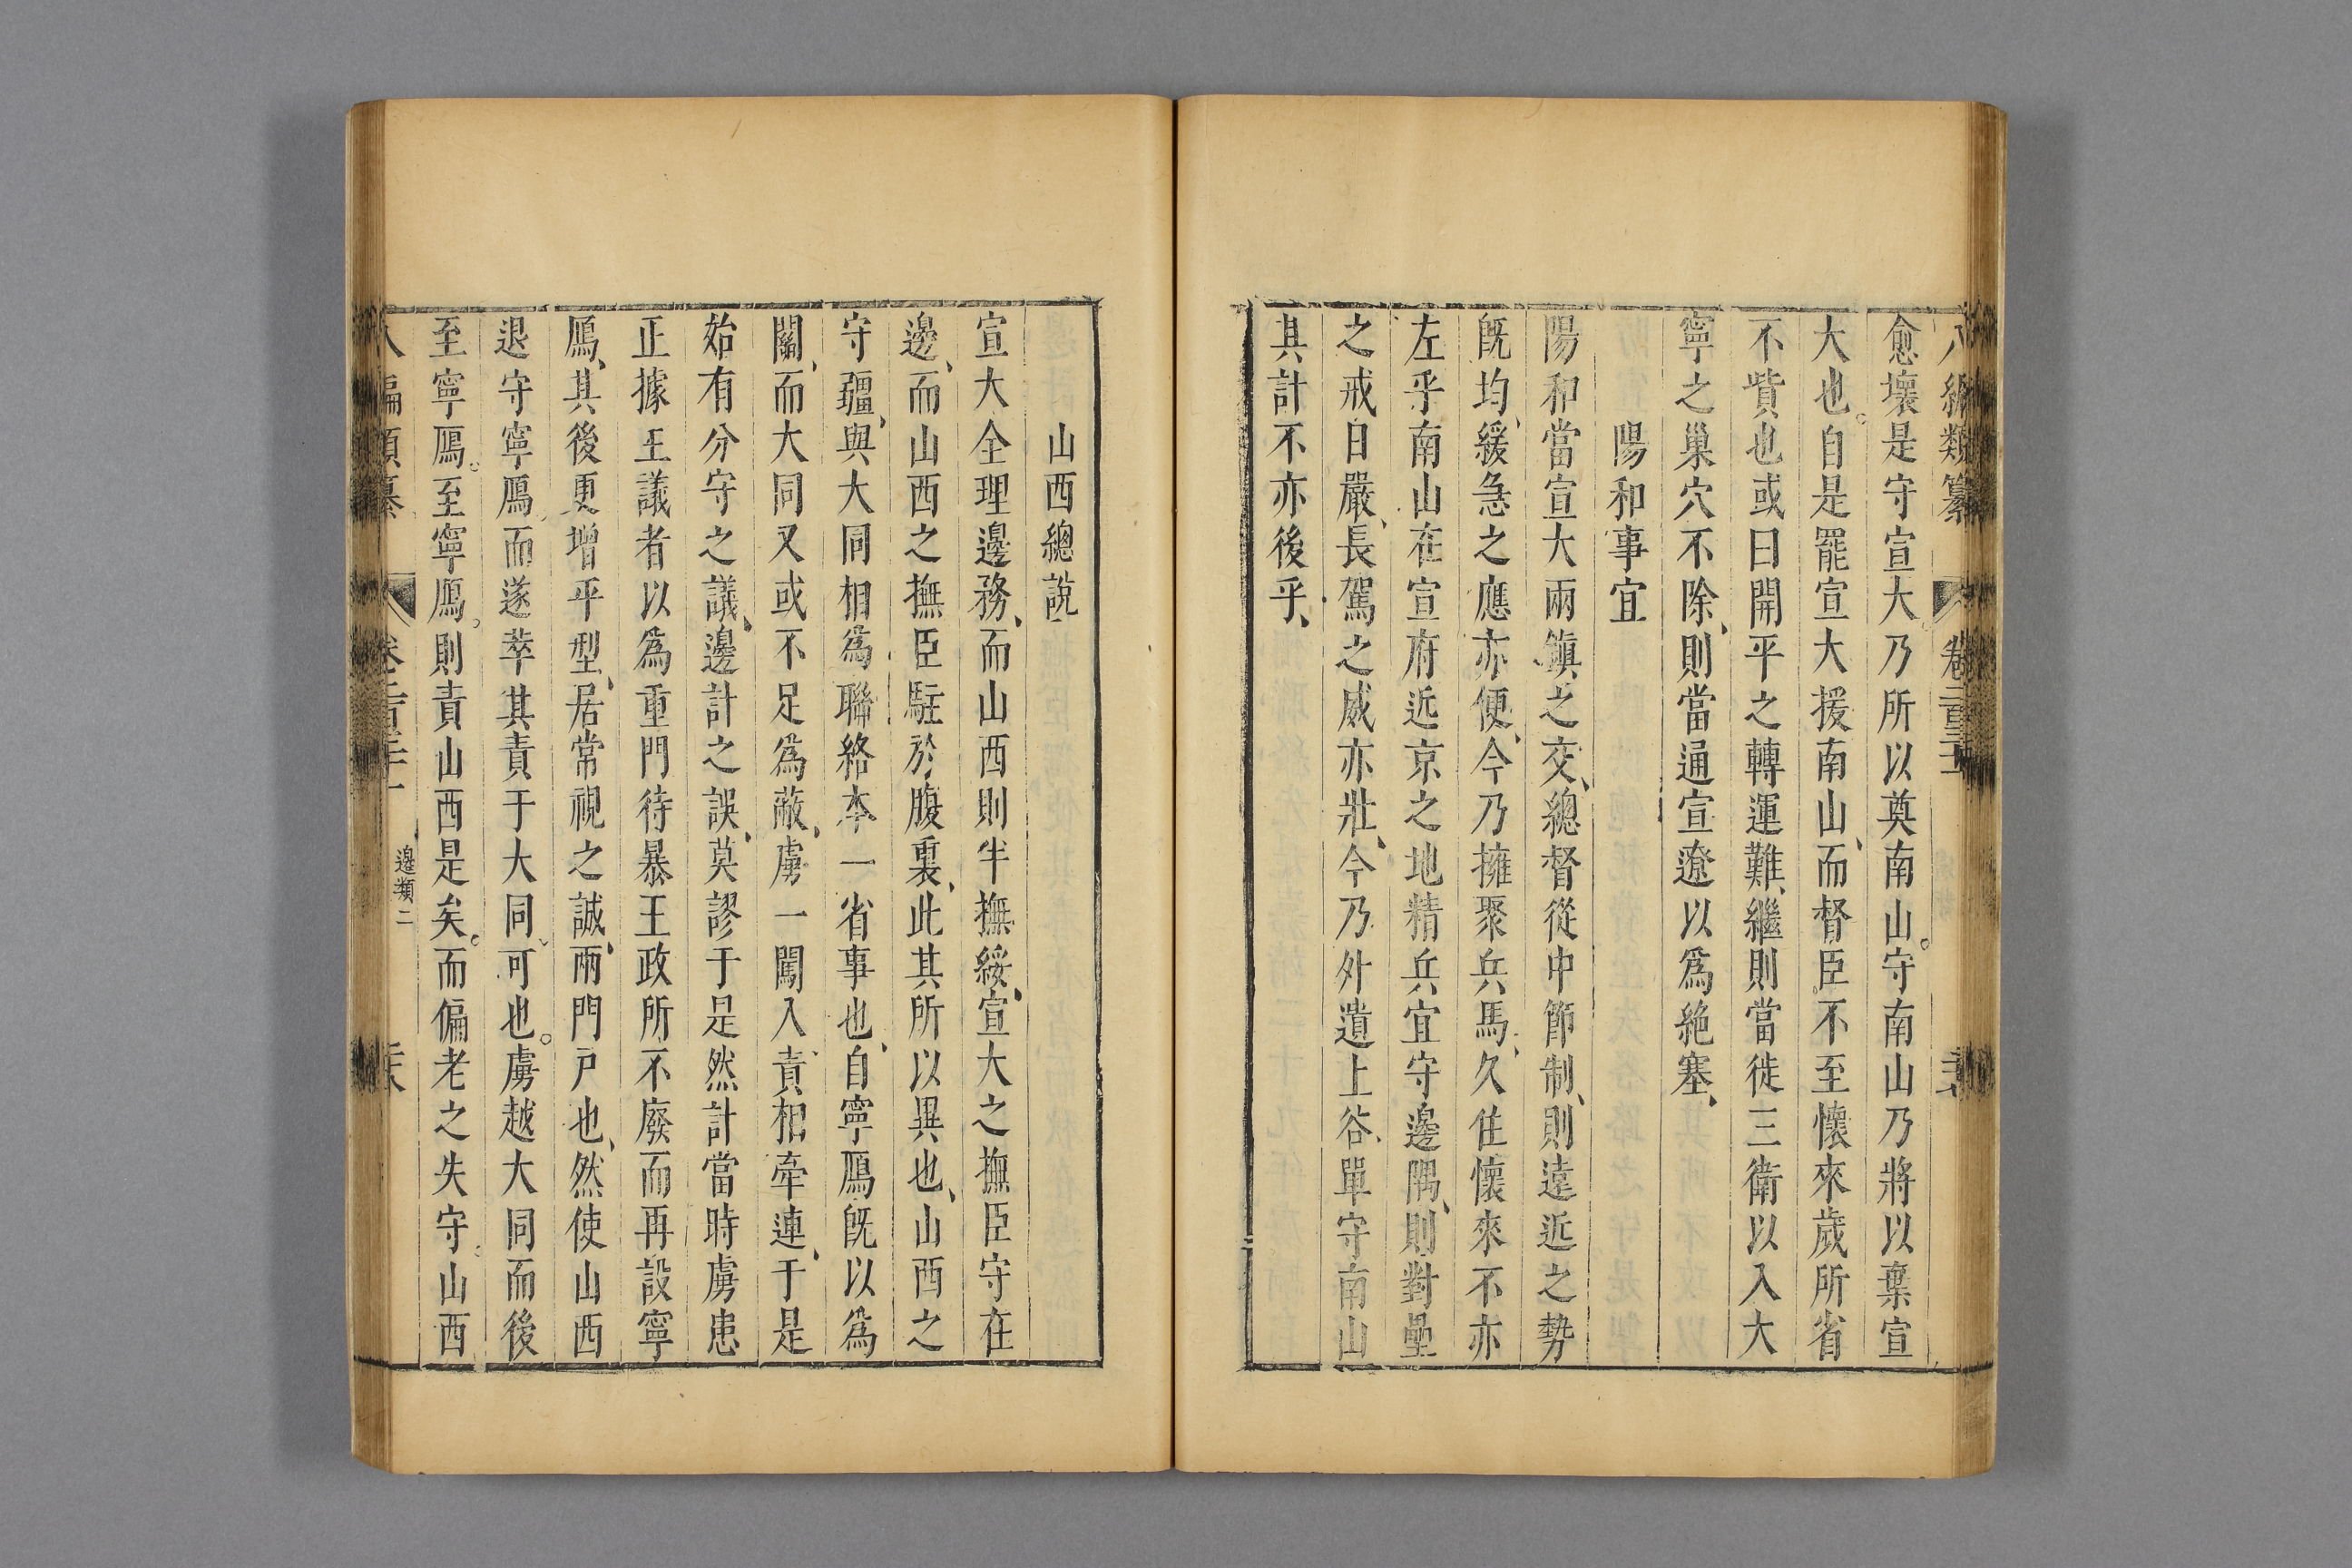 八編類纂 卷二百三十一
愈壞是守宣大乃所以奠南山守南山乃將以棄宣
大也自是罷宣大援南山而督臣不至懷來歲所省
不貲也或曰開平之轉運難繼則當徙三衛以入大
寧之巢穴不除則當通宣遼以爲絶塞
陽和事宜
陽和當宣大兩鎭之交總督從中節制則遠近之勢
旣均緩急之應亦便今乃擁聚兵馬久住懷來不亦
左乎南山在宣府近京之地精兵宜守邊隅則對壘
之戒日嚴長駕之威亦壯今乃外遺上谷單守南山
其計不亦後乎
山西總說
宣大全理邊務而山西則半撫綏宣大之撫臣守在
邊而山西之撫臣駐於腹裏此其所以異也山西之
守疆與大同相爲聯絡本一省事也自寧鴈旣以爲
關而大同又或不足爲蔽虜一闖入責相牽連于是
始有分守之議邊計之誤莫謬于是然計當時虜患
正據王議者以爲重門待暴王政所不廢而再設寧
鴈其後更增平型居常視之誠兩門戶也然使山西
退守寧鴈而遂萃其責于大同可也虜越大同而後
至寧鴈至寧鴈則責山西是矣而偏老之失守山西
八編類纂 卷二百三十一 邊類二